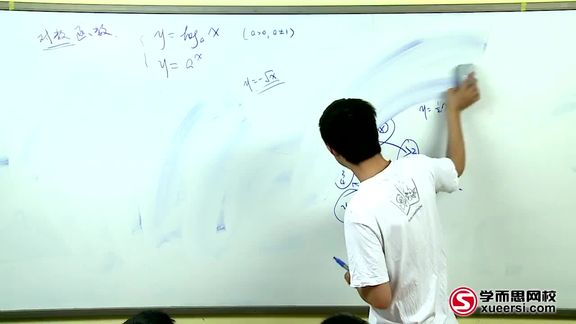 对数函数.
y = log_a x (a>0, a≠1)
y = a^x
y = -√x
学而思网校
xueersi.com